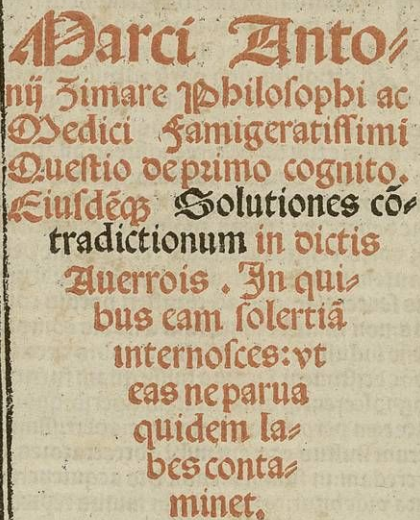 Marci Anto⸗
nij Zimare Philosophi ac
Medici Famigeratissimi
Questio de primo cognito.
Eiusdēqꝫ Solutiones cō⸗
tradictionum in dictis
Auerrois . In qui⸗
bus eam solertiā
internosces: vt
eas ne parua
quidem la⸗
bes conta⸗
minet.